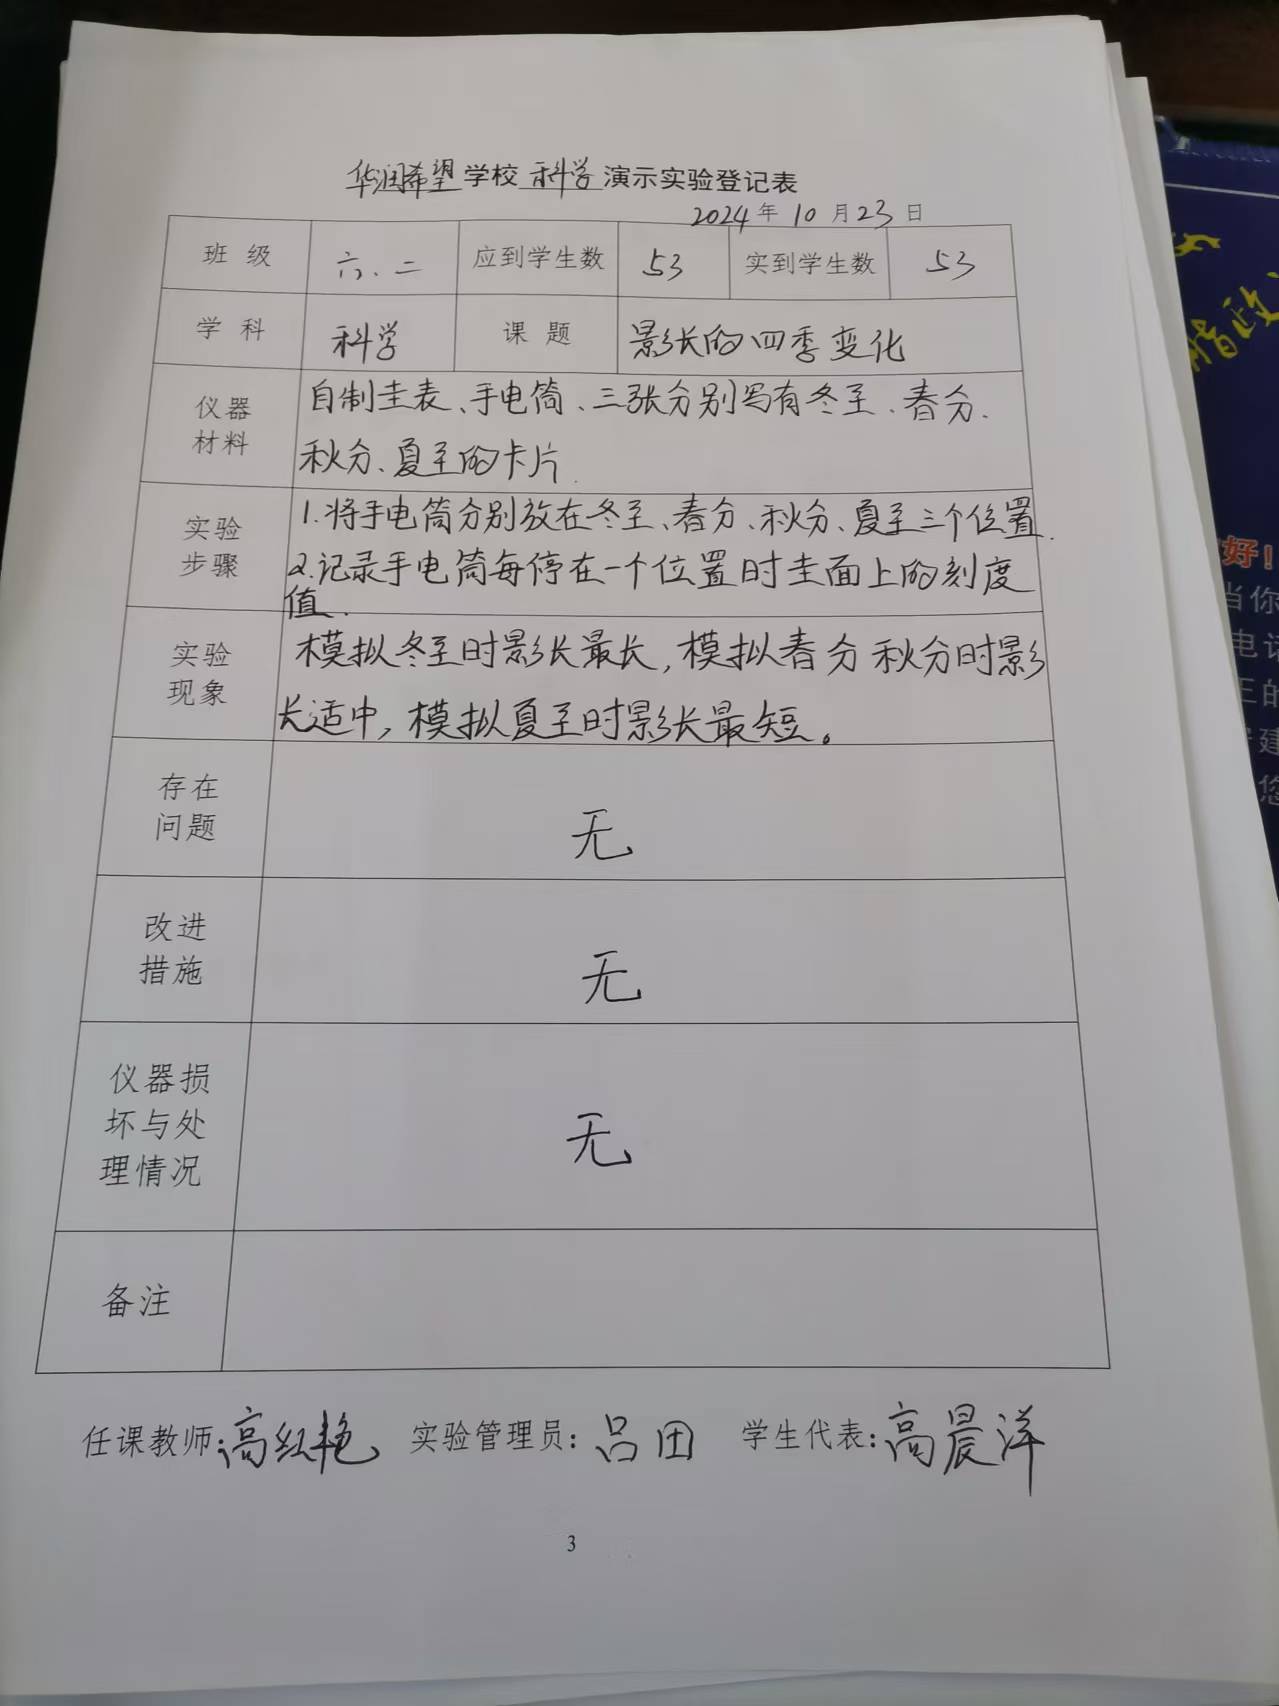 华润希望学校 科学 演示实验登记表
2024年10月23日
班级 六、二 应到学生数 53 实到学生数 53
学科 科学 课题 影长的四季变化
仪器
材料
自制圭表、手电筒、三张分别写有冬至、春分、
秋分、夏至的卡片.
实验
步骤
1.将手电筒分别放在冬至、春分、秋分、夏至三个位置.
2.记录手电筒每停在一个位置时圭面上的刻度
值.
实验
现象
模拟冬至时影长最长,模拟春分秋分时影
长适中,模拟夏至时影长最短。
存在
问题
无
改进
措施
无
仪器损
坏与处
理情况
无
备注
任课教师:高红艳 实验管理员:吕田 学生代表:高晨洋
3
好!
当你